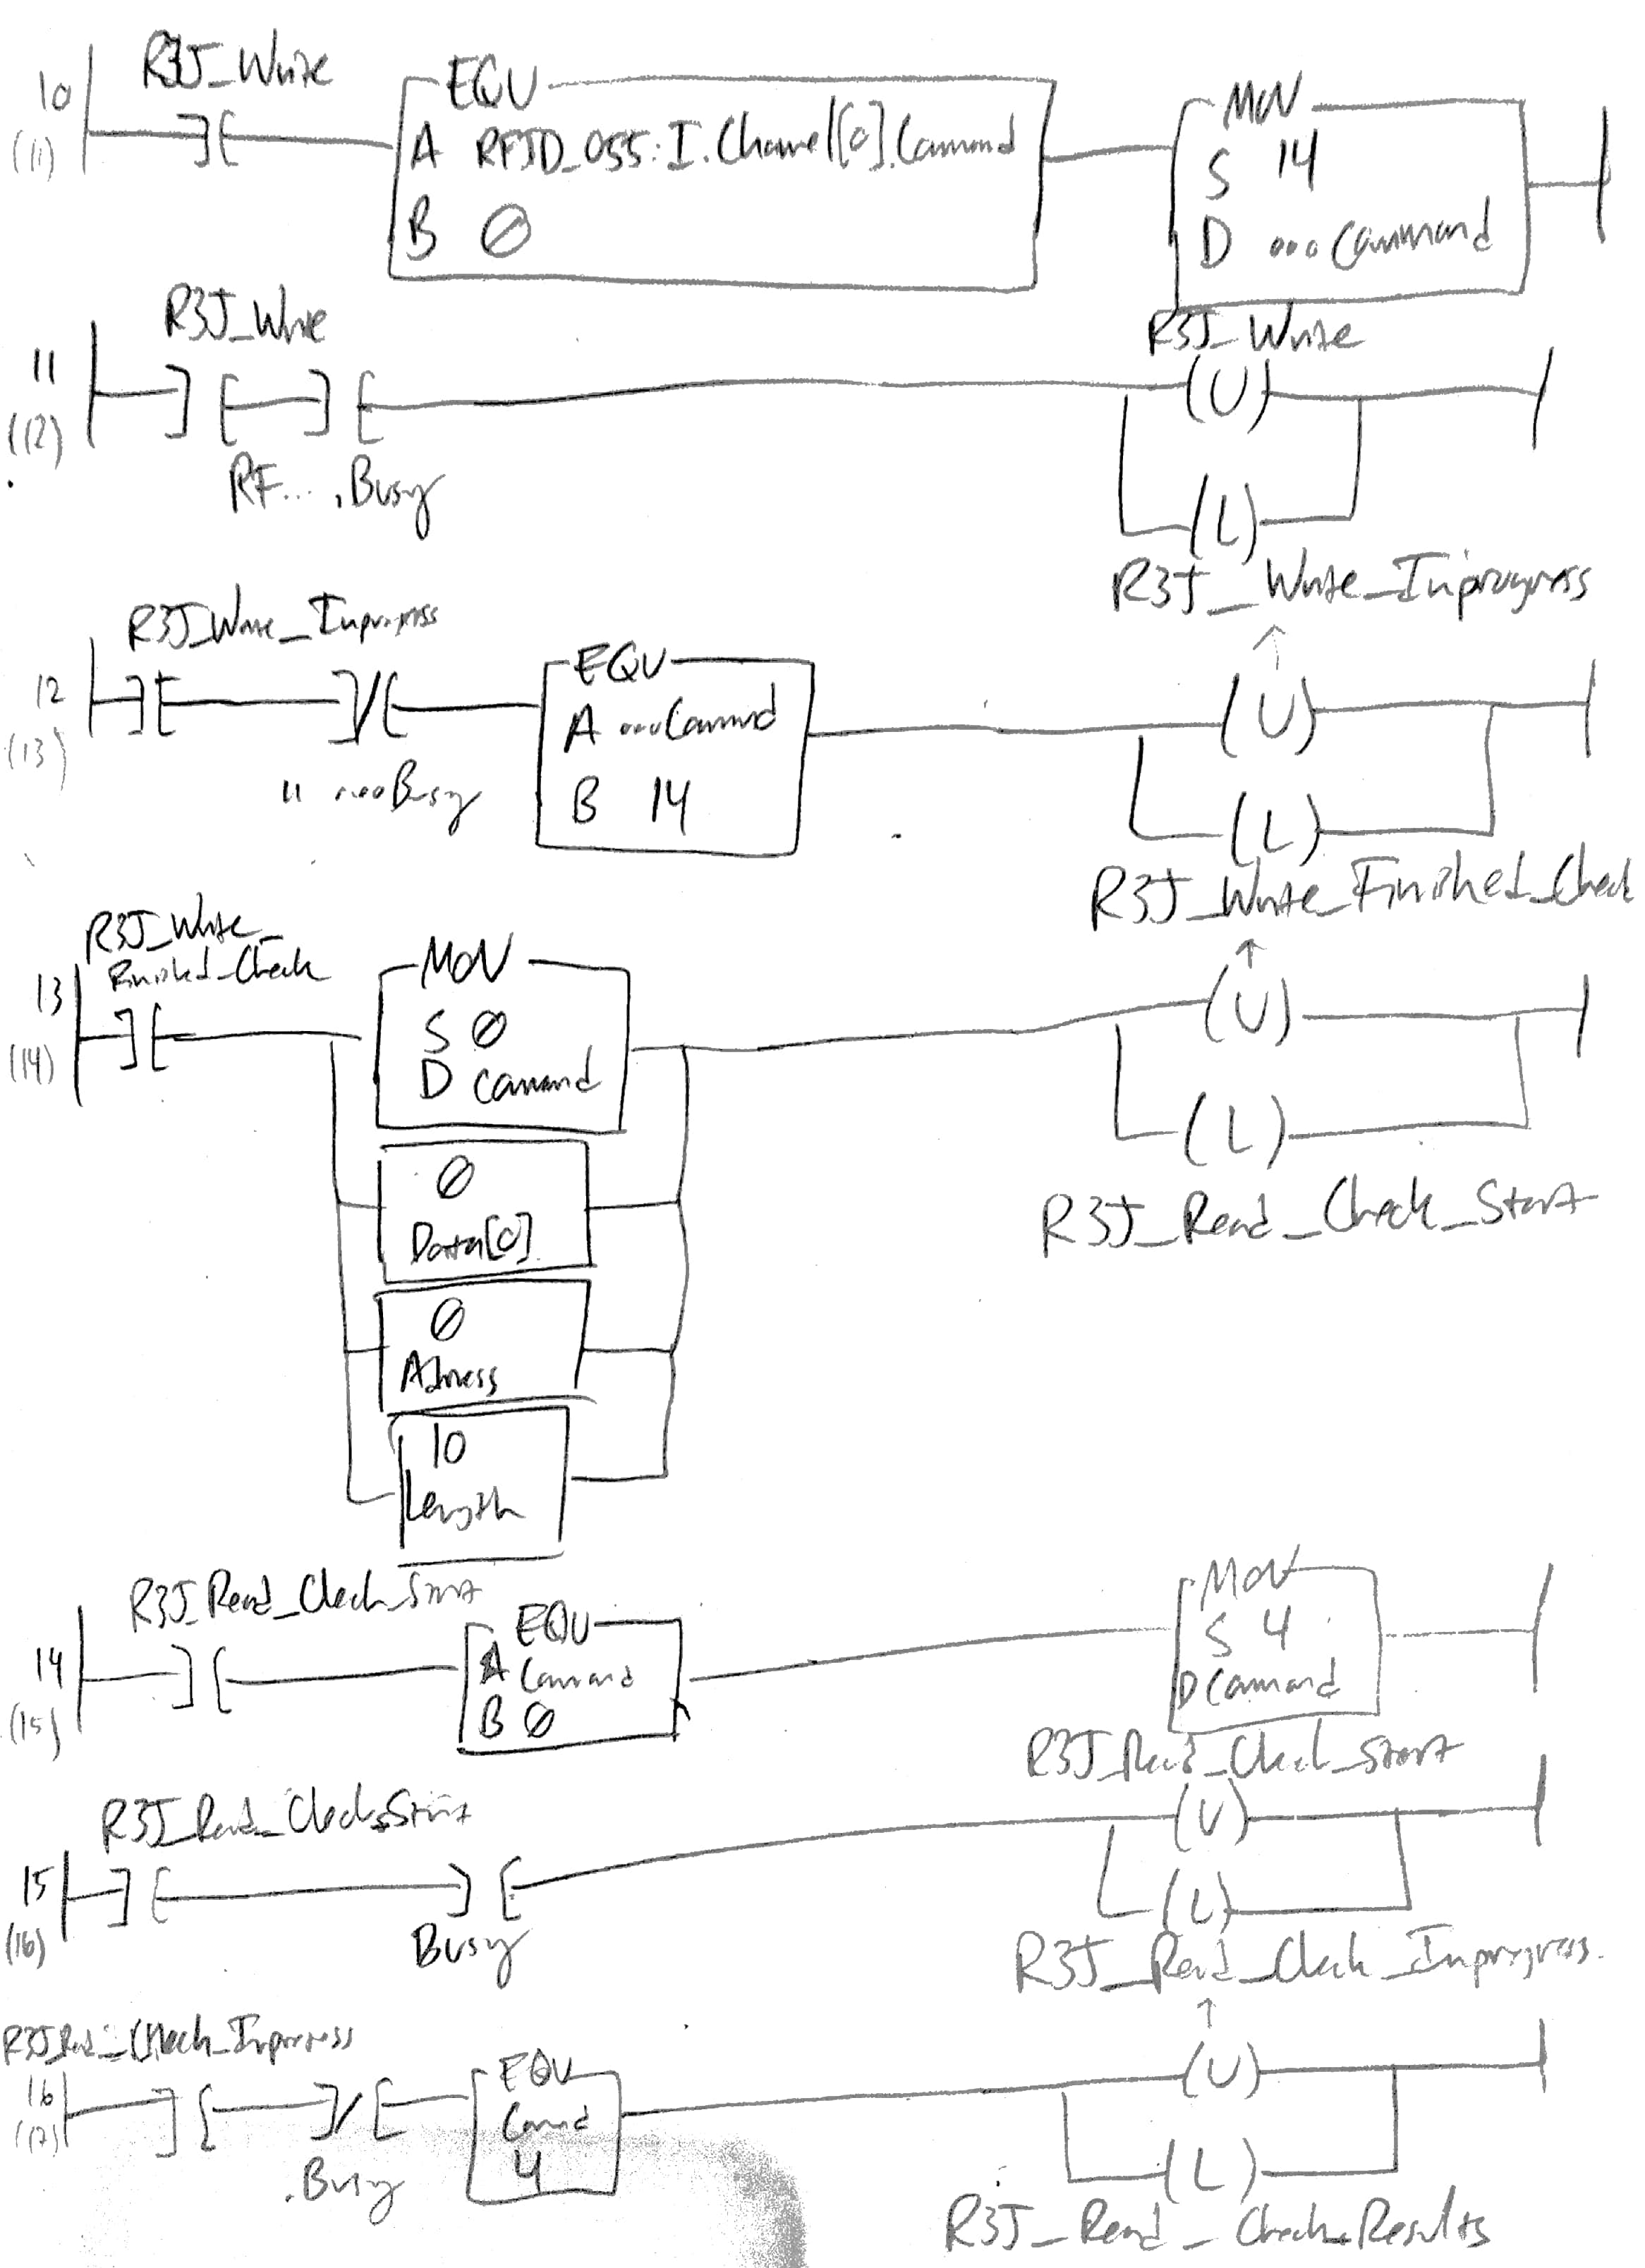 10
(11)
R3J_Write
EQU
A RFID_055:I.Channel[0].Command
B 0
MOV
S 14
D ...Command
11
(12)
R3J_Write
RF... .Busy
R3J_Write
(U)
(L)
R3J_Write_Inprogress
12
(13)
R3J_Write_Inprogress
" ...Busy
EQU
A ...Command
B 14
↑
(U)
(L)
R3J_Write_Finished_Check
13
(14)
R3J_Write_
Finished_Check
MOV
S 0
D Command
0
Data[0]
0
Address
10
Length
↑
(U)
(L)
R3J_Read_Check_Start
14
(15)
R3J_Read_Check_Start
EQU
A Command
B 0
MOV
S 4
D Command
15
(16)
R3J_Read_Check_Start
Busy
R3J_Read_Check_Start
(U)
(L)
R3J_Read_Check_Inprogress
16
(17)
R3J_Read_Check_Inprogress
.Busy
EQU
Command
4
↑
(U)
(L)
R3J_Read_Check_Results